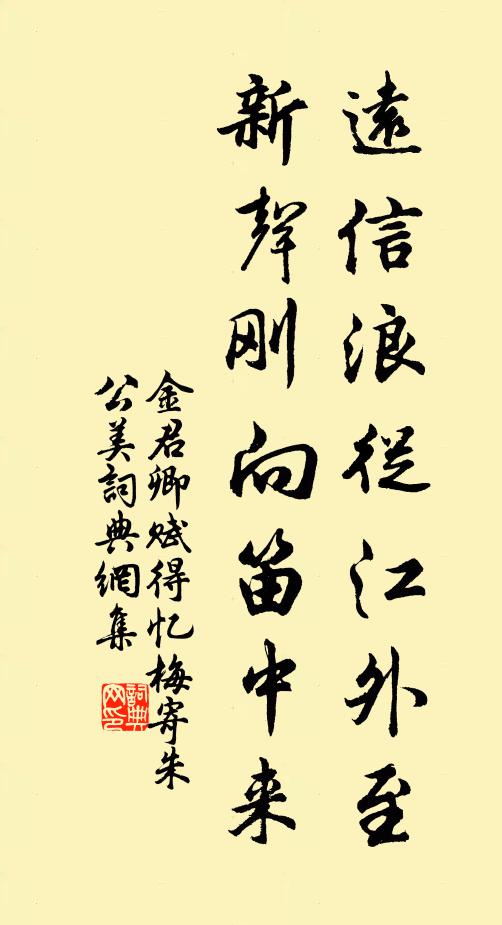 遠信浪從江外至
新聲刚向笛中来
金君卿赋得忆梅寄朱
公美詞典網集
詞典
网印